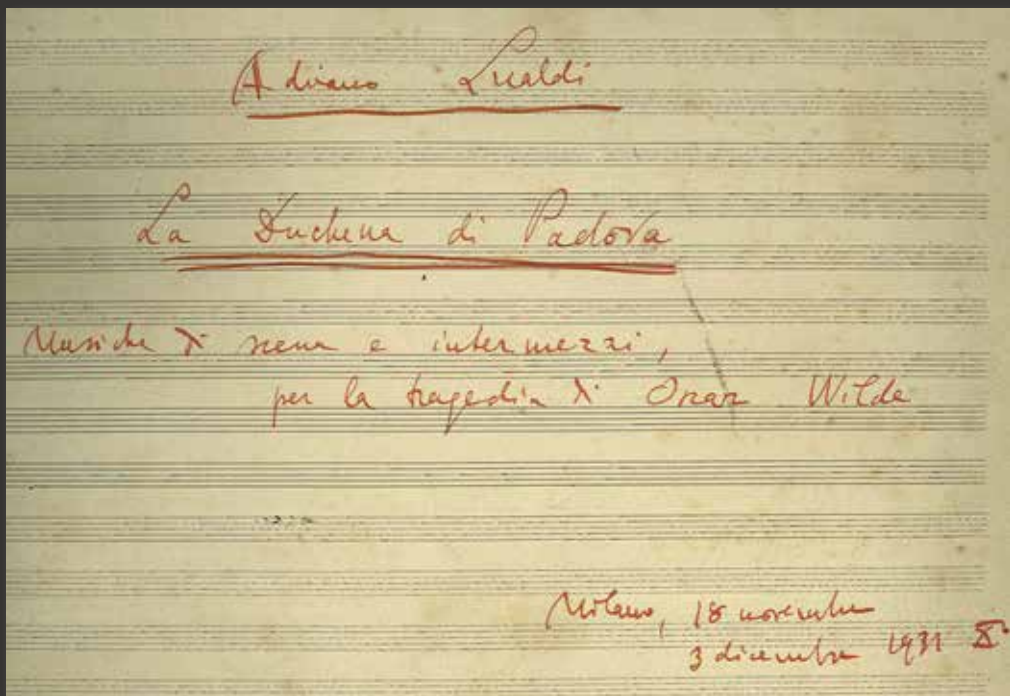 Adriano Lualdi
La Duchessa di Padova
Musiche di scena e intermezzi,
per la tragedia di Oscar Wilde
Milano, 18 novembre
3 dicembre 1931 X°